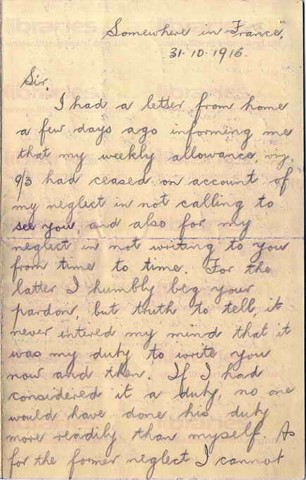 Somewhere in France,
31-10-1916.
Sir,
I had a letter from home
a few days ago informing me
that my weekly allowance, viz.
9/3 had ceased on account of
my neglect in not calling to
see you, and also for my
neglect in not writing to you
from time to time. For the
latter I humbly beg your
pardon, but truth to tell, it
never intered my mind that it
was my duty to write you
now and then. If I had
considered it a duty, no one
would have done his duty
more readily than myself. As
for the former neglect I cannot